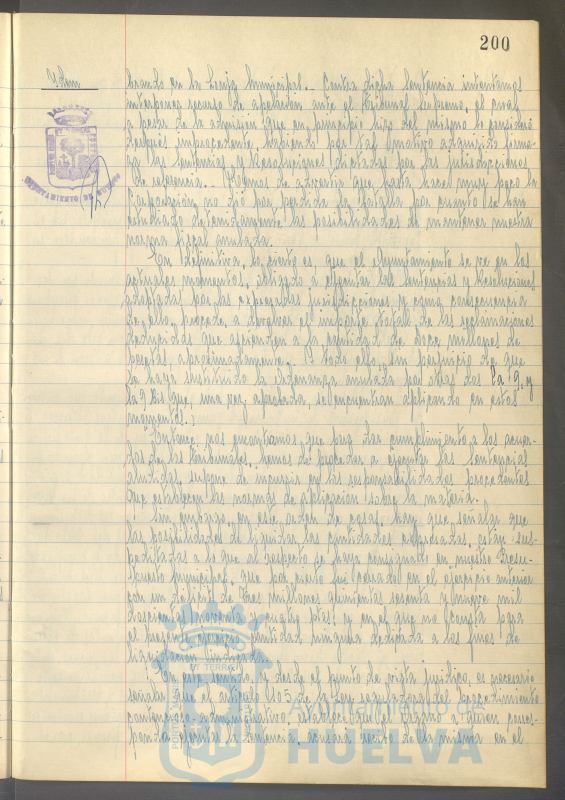 200
Idem
brando en la Lonja Municipal.- Contra dicha Sentencia intentamos
interponer recurso de apelación ante el Tribunal Supremo, el cual,
a pesar de la admisión que en principio hizo del mismo lo consideró
después improcedente, habiendo por tal motivo adquirido firme-
za las Sentencias y Resoluciones dictadas por las jurisdicciones
de referencia.- Hemos de advertir que hasta hace muy poco la
Corporación no dió por perdida la batalla por cuanto se han
estudiado detenidamente las posibilidades de mantener nuestra
norma fiscal anulada.
En definitiva, lo cierto es, que el Ayuntamiento se ve en los
actuales momentos, obligado a ejecutar las Sentencias y Resoluciones
adoptadas por las expresadas jurisdicciones y como consecuencia
de ello, procede a devolver el importe total de las reclamaciones
deducidas que ascienden a la cantidad de doce millones de
pesetas aproximadamente.- Todo ello, sin perjuicio de que
se haya sustituido la Ordenanza anulada por otras dos la 9 y
la 9 Bis que, una vez aprobada, se encuentran aplicando en estos
momentos.
Entonces nos encontramos que para dar cumplimiento a los acuer-
dos de los Tribunales, hemos de proceder a ejecutar las Sentencias
aludidas, supone de incurrir en las responsabilidades procedentes
que establecen las normas de aplicación sobre la materia.
Sin embargo, en este orden de cosas, hay que señalar que
las posibilidades de liquidar las cantidades expresadas, están sus-
peditadas a lo que al respecto se haya consignado en nuestro Presu-
puesto Municipal, que por cierto fué cerrado en el ejercicio anterior
con un déficit de tres millones quinientas sesenta y nueve mil
doscientas noventa y cuatro ptas. y en el que no consta para
el presente ejercicio cantidad ninguna dedicada a los fines de
liquidación indicada.
En este sentido y desde el punto de vista jurídico, es necesario
señalar que el artículo 105 de la Ley reguladora del procedimiento
contencioso-administrativo, establece que el Órgano a quien corres-
ponda ejecutar la sentencia, acusará recibo de la misma en el
AYUNTAMIENTO DE HUELVA
Ayuntamiento de
HUELVA